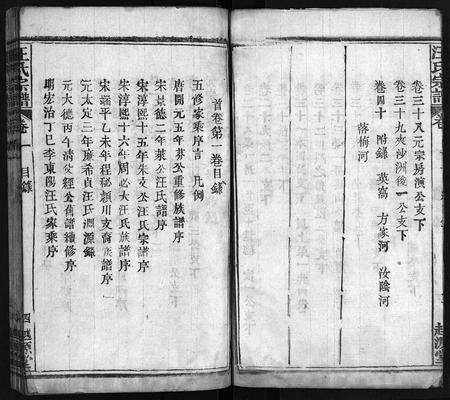 汪氏宗譜
卷三十八元宗易演公支下
卷三十九夾沙洲後一公支下
卷四十 附錄 英窩 方家河 汝陰河
落梅河
越源堂
首卷第一卷目錄
五修家乘序言 凡例
唐開元五年 公重修族譜序
宋景德二年 公汪氏譜序
宋淳熙十五年朱文公汪氏宗譜序
朱淳熙十六年周必大汪氏族譜序
宋端平乙未年程珌潁川支裔族譜序
元太定三年廉希貞汪氏淵源錄
元大德丙午清 經公舊譜續修序
明宏治丁巳李東陽汪氏家乘序
汪氏宗譜
卷一 目錄
四 越源堂